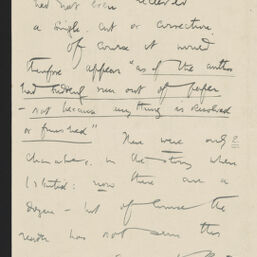 had not even received
a single cut or correction.
Of course it would
therefore appear "as if the author
had suddenly run out of paper
- not because anything is resolved
or finished" There were only 2
chambers in the story when
I started: now there are a
dozen - but of course the
reader has not seen this